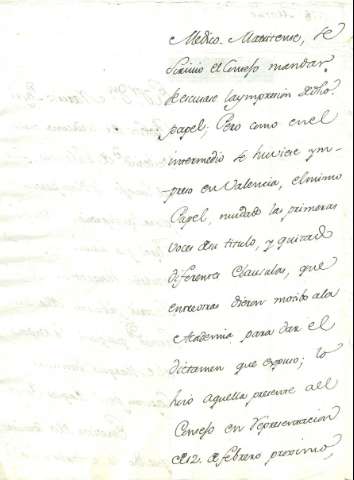 Medico Matritense, se
sirvio el Consejo mandar
se escusase la ympresion de dho
papel; Pero como en el
intermedio se huviese ym-
-preso en Valencia, el mismo
Papel, mudado las primeras
voces de su titulo, y quitado
diferentes Clausulas, que
entre otras dieron motivo a la
Academia para dar el
dictamen que expuso; lo
hizo aquella presente al
Consejo en representacion
de 12. de febrero proximo,